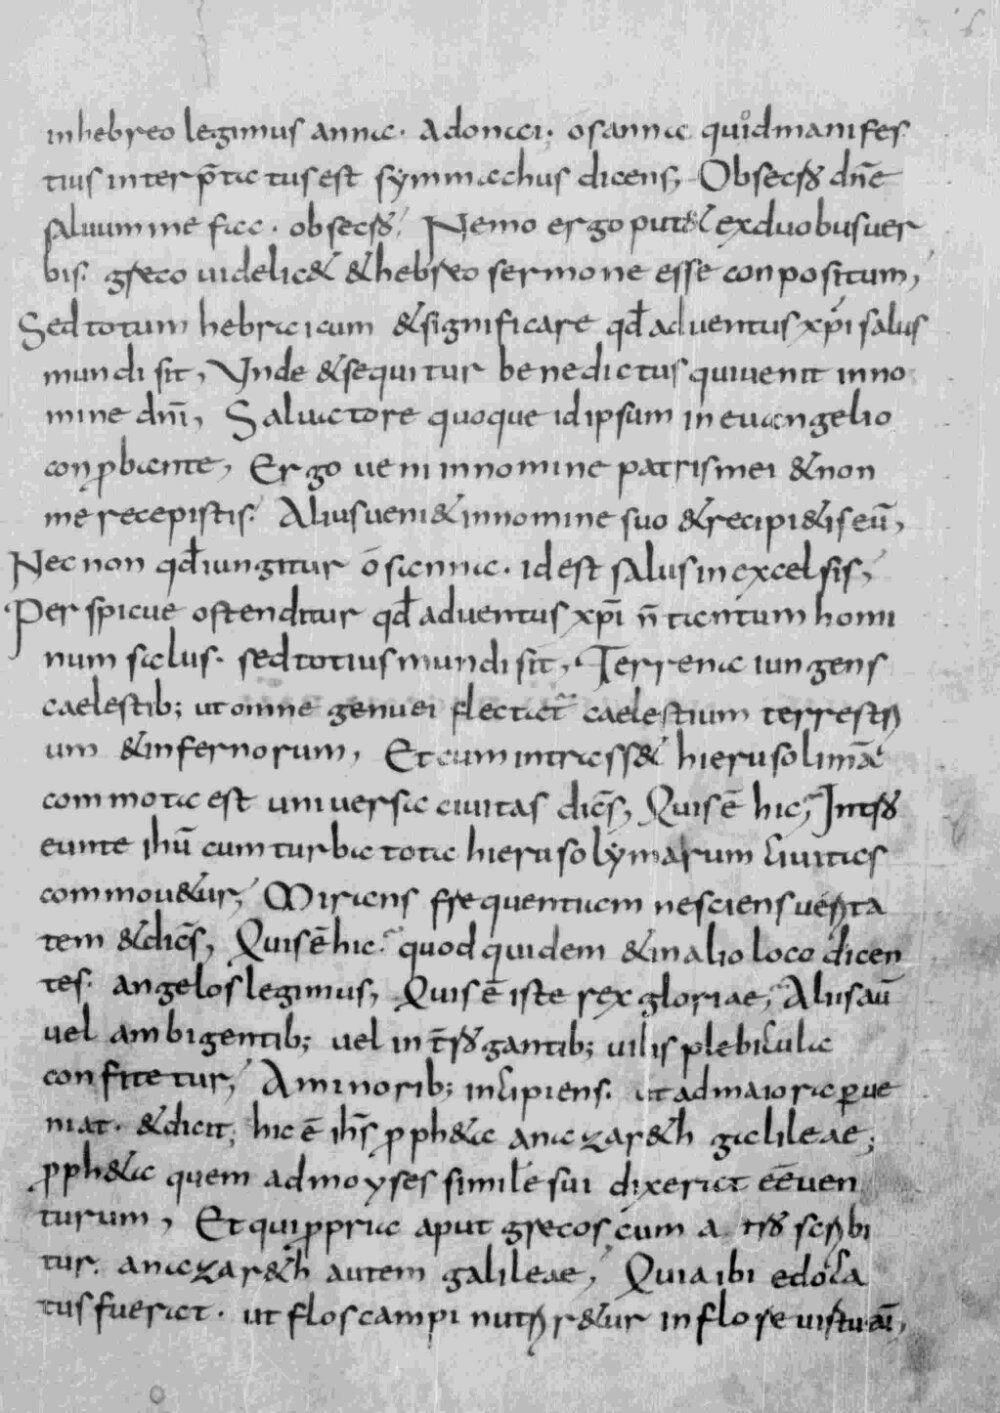 inhebreo legimus anna· adonai; osanna quod manifes
tius interp̄tatus est symmachus dicens, Obsecro dn̄e
saluum me fac· obsecro, Nemo ergo put& ex duobus uer
bis· greco uidelic& &hebreo sermone esse conpositum,
Sed totum hebraicum &significare qđ aduentus xp̄i salus
mundi sit, Vnde &sequitur benedictus qui uenit inno
mine dn̄i, Saluatore quoque id ipsum in euangelio
conꝓbante, Ergo ueni innomine patris mei &non
me recepistis· Alius ueni& innomine suo &recipi&is eū,
Nec non qđ iungitur ōsanna· id est salus in excelsis,
Perspicue ostenditur qđ aduentus xp̄i n̄ tantum homi
num salus· sed totius mundi sit, Terrena iungens
caelestib; ut omne genu ei flectat̄ caelestium terrestri
um &infernorum, Et cum intrass& hierusolimā
commota est uniuersa ciuitas dic̄s, Quis ē hic, Intro
eunte ihū cum turba tota hierusolymarum ciuitas
commou&ur, Mirans frequentiam nesciens uerita
tem &dic̄s, Quis ē hic· quod quidem &in alio loco dicen
tes· angelos legimus, Quis ē iste rex gloriae, Aliis aū
uel ambigentib; uel int̄rogantib; uilis plebicula
confitetur, A minorib; incipiens· ut ad maiora ꝑue
niat· &dicit, hic ē ih̄s ꝓph&a anazar&h galileae;
ꝓph&a quem ad moyses similē sui dixerat eē uen
turum, Et qui ꝓpriae aput grecos cum a tro scribi
tur· anazar&h autem galileae, Quia ibi edoca
tus fuerat· ut flos campi nutrir&ur in flore uirtutū,